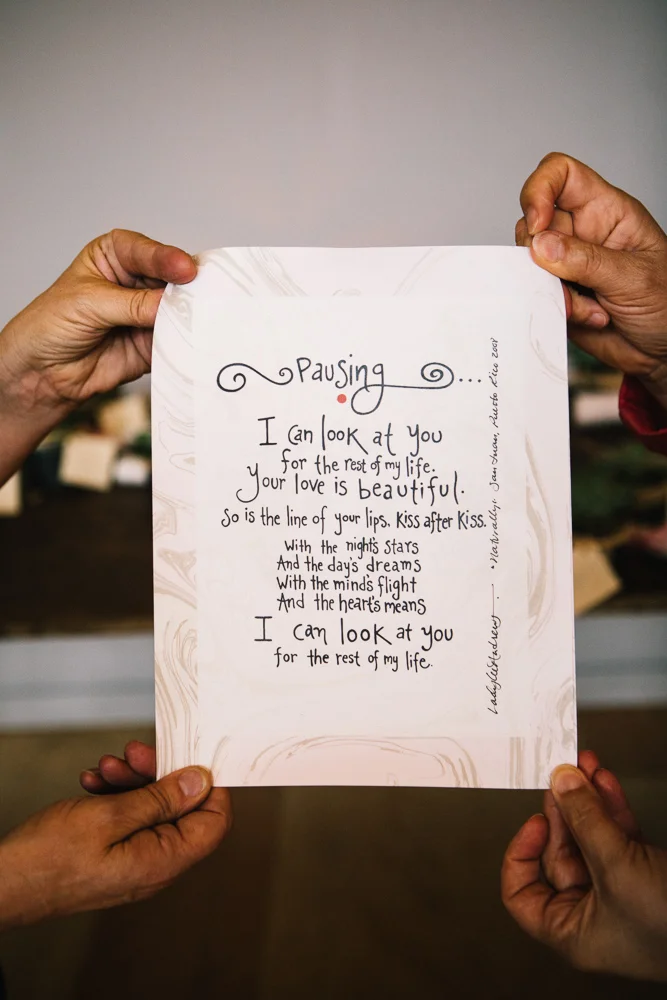 Pausing...
I can look at you
for the rest of my life.
Your love is beautiful.
So is the line of your lips. Kiss after Kiss.
With the night's stars
And the day's dreams
With the mind's flight
And the heart's means
I can look at you
for the rest of my life.
San Juan, Puerto Rico 2008